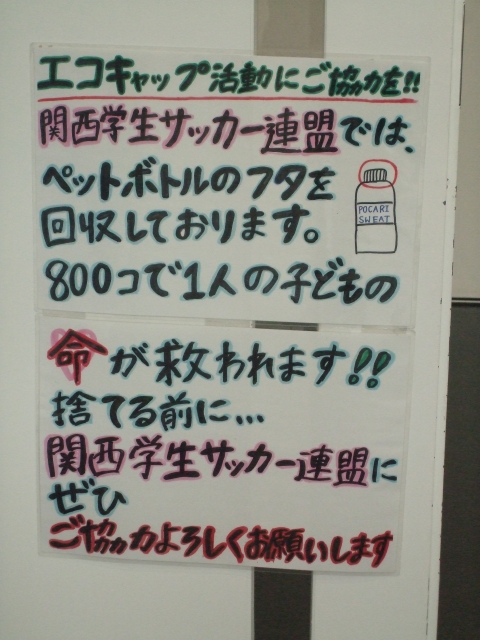 エコキャップ活動にご協力を!!
関西学生サッカー連盟では、
ペットボトルのフタを
回収しております。
POCARI
SWEAT
800コで1人の子どもの
命が救われます!!
捨てる前に...
関西学生サッカー連盟に
ぜひ
ご協力よろしくお願いします